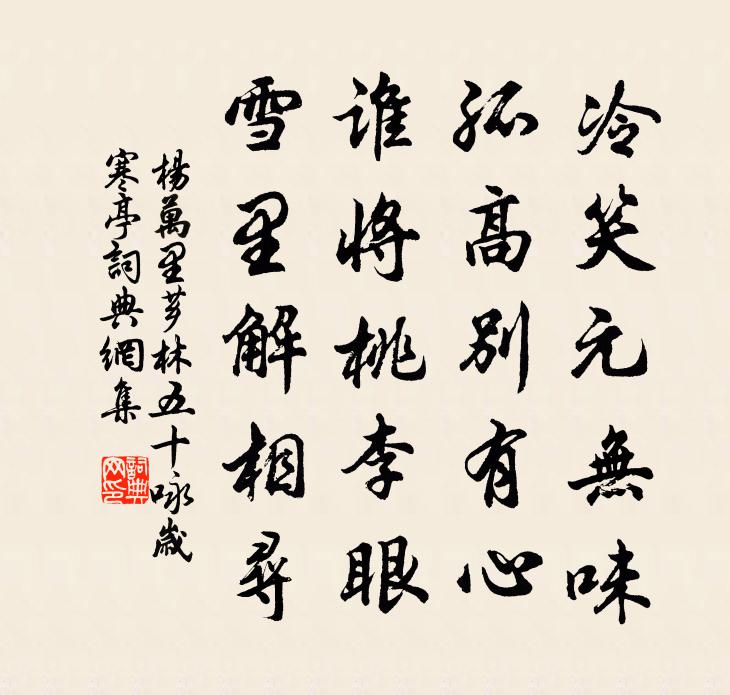 冷笑元無味
孤高別有心
誰將桃李眼
雪里解相尋
楊萬里芗林五十咏歲
寒亭詞典網集
詞典
网印